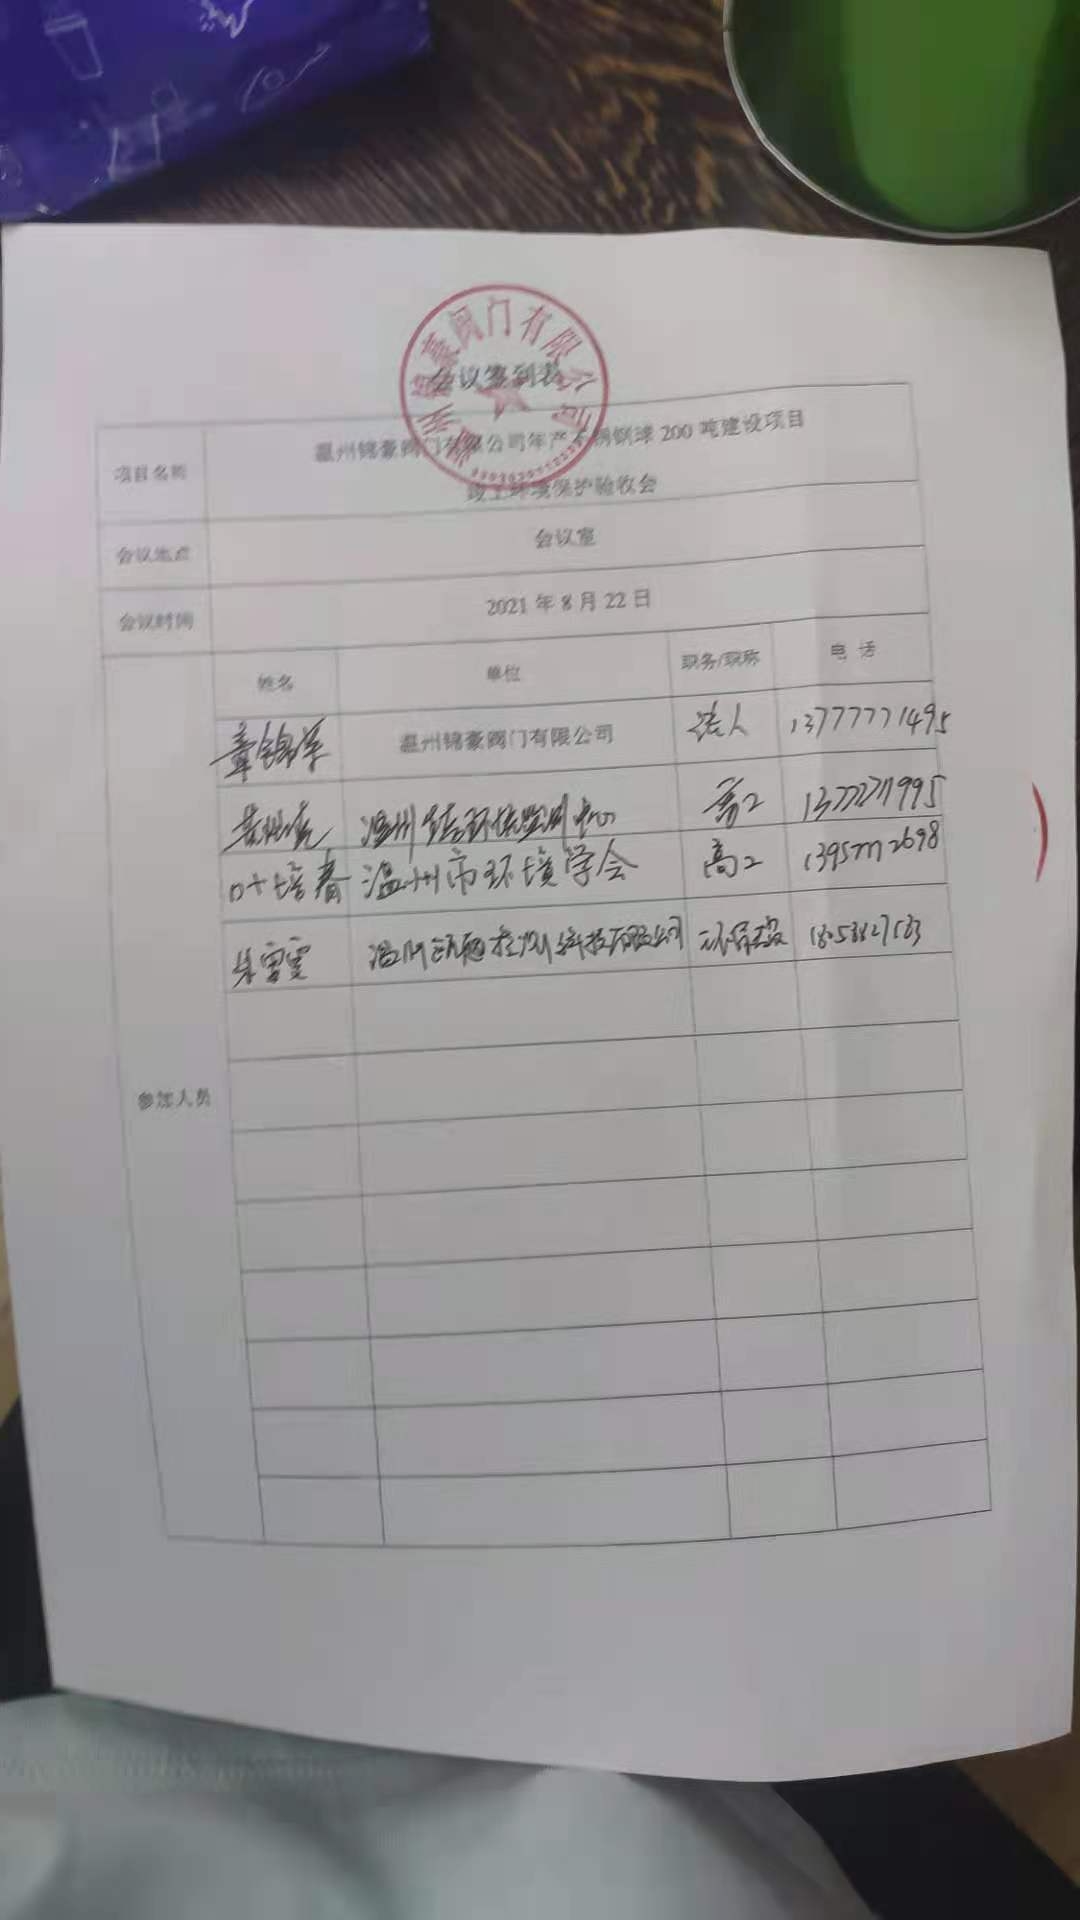 温州锦豪阀门有限公司
会议签到表
项目名称
温州锦豪阀门有限公司年产不锈钢球 200 吨建设项目
竣工环境保护验收会
会议地点
会议室
会议时间
2021 年 8 月 22 日
参加人员
姓名 单位 职务/职称 电 话
章锦 温州锦豪阀门有限公司 法人 13777771495
温州 环境监测中心 高工
叶培春 温州市环境学会 高工 13957712698
朱雪雯 温州 检测科技有限公司